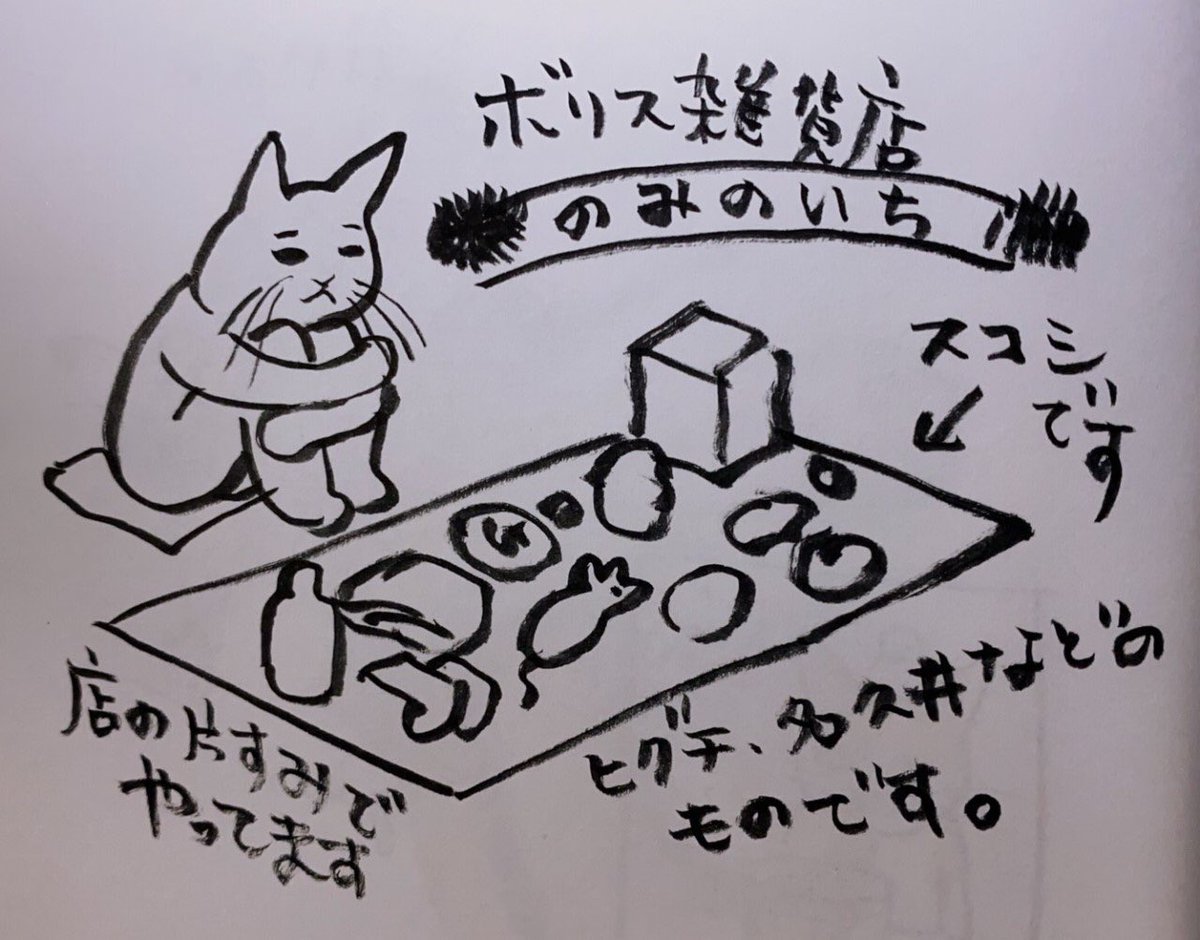 ボリス雑貨店
のみのいち
スコシ
です
店の片すみで
やってます
ヒグチ、多久井などの
ものです。